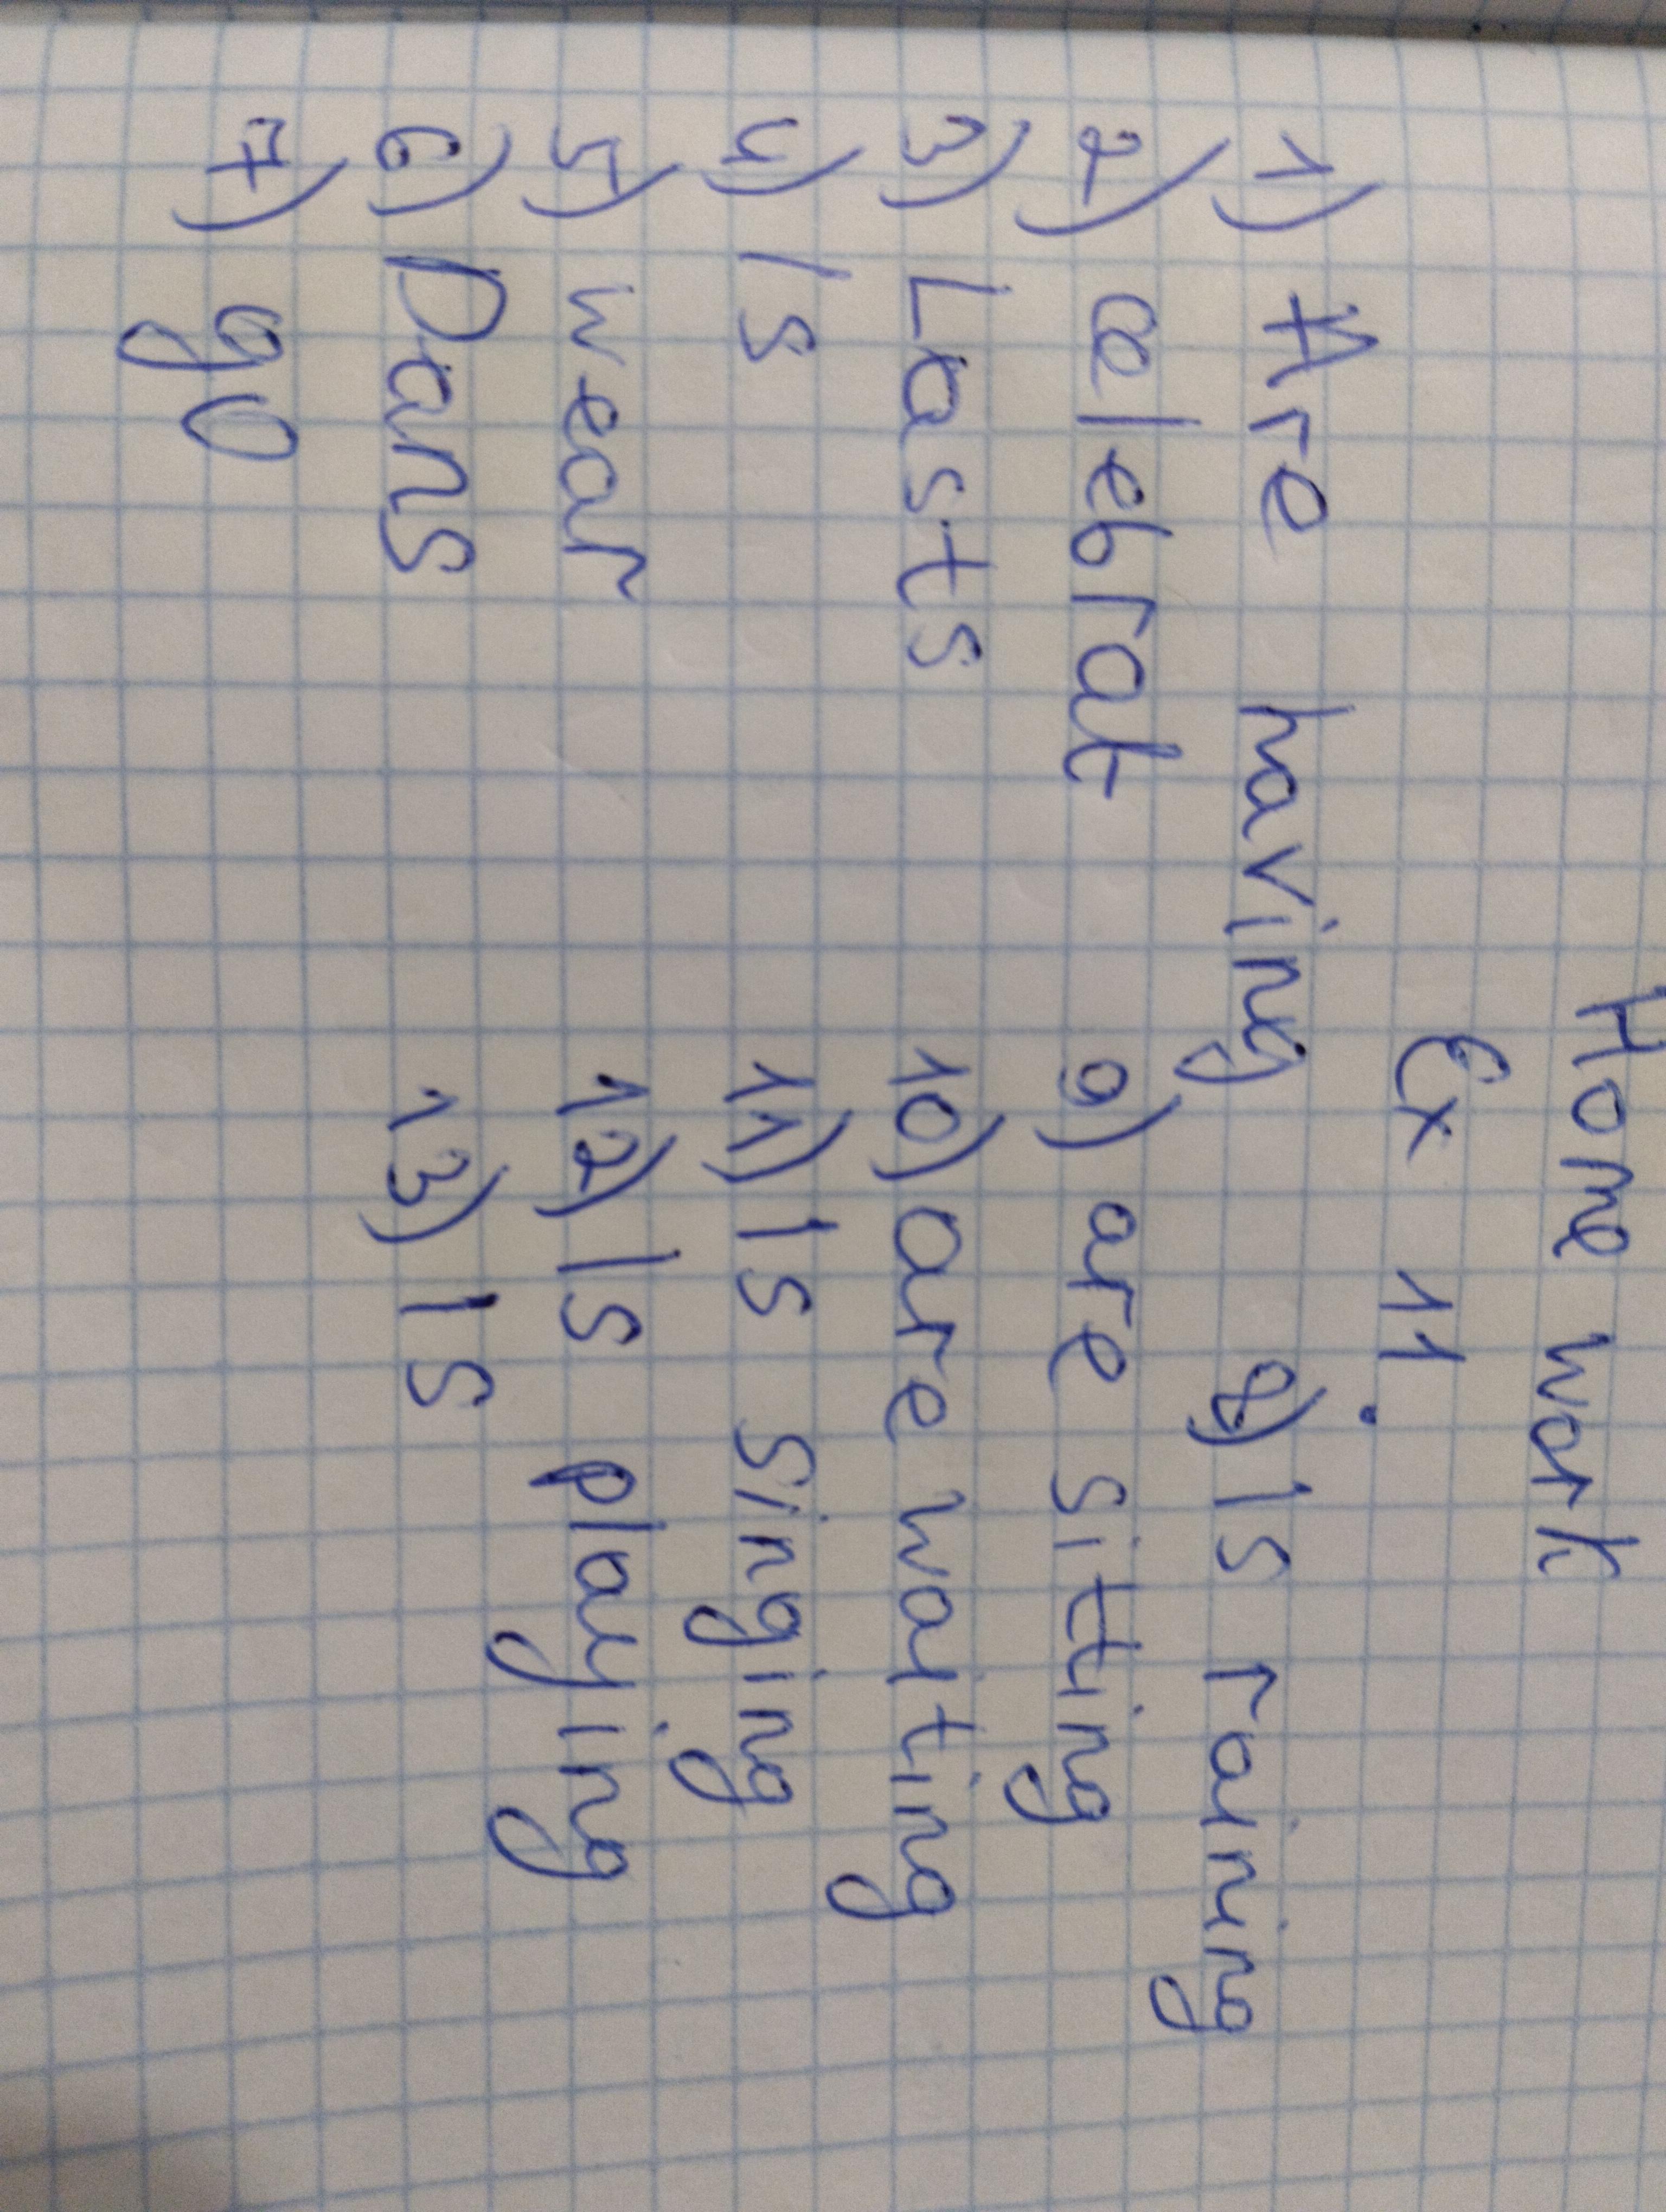 Home work
Ex 11.
1) Are having
2) celebrat
3) Lasts
4) Is
5) wear
6) Dans
7) go
8) Is raining
9) are sitting
10) are waiting
11) Is singing
12) Is playing
13) Is